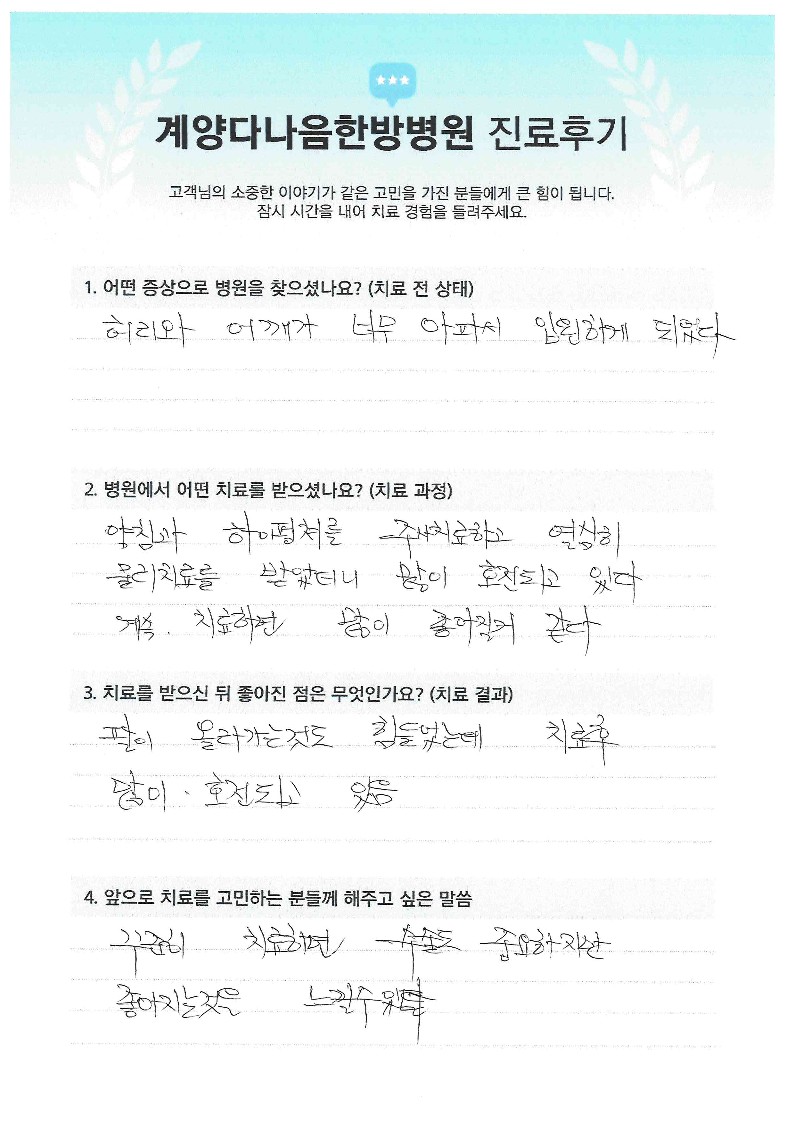 계양다나음한방병원 진료후기
고객님의 소중한 이야기가 같은 고민을 가진 분들에게 큰 힘이 됩니다.
잠시 시간을 내어 치료 경험을 들려주세요.
1. 어떤 증상으로 병원을 찾으셨나요? (치료 전 상태)
허리와 어깨가 너무 아파서 입원하게 되었다
2. 병원에서 어떤 치료를 받으셨나요? (치료 과정)
약침과 하이펄쳐를 주사치료하고 열심히
물리치료를 받았더니 많이 호전되고 있다
계속. 치료하면 많이 좋아질거 같다
3. 치료를 받으신 뒤 좋아진 점은 무엇인가요? (치료 결과)
팔이 올라가는것도 힘들었는데 치료후
많이. 호전되고 있음
4. 앞으로 치료를 고민하는 분들께 해주고 싶은 말씀
꾸준히 치료하면 수술도 중요하지만
좋아지는것을 느낄수